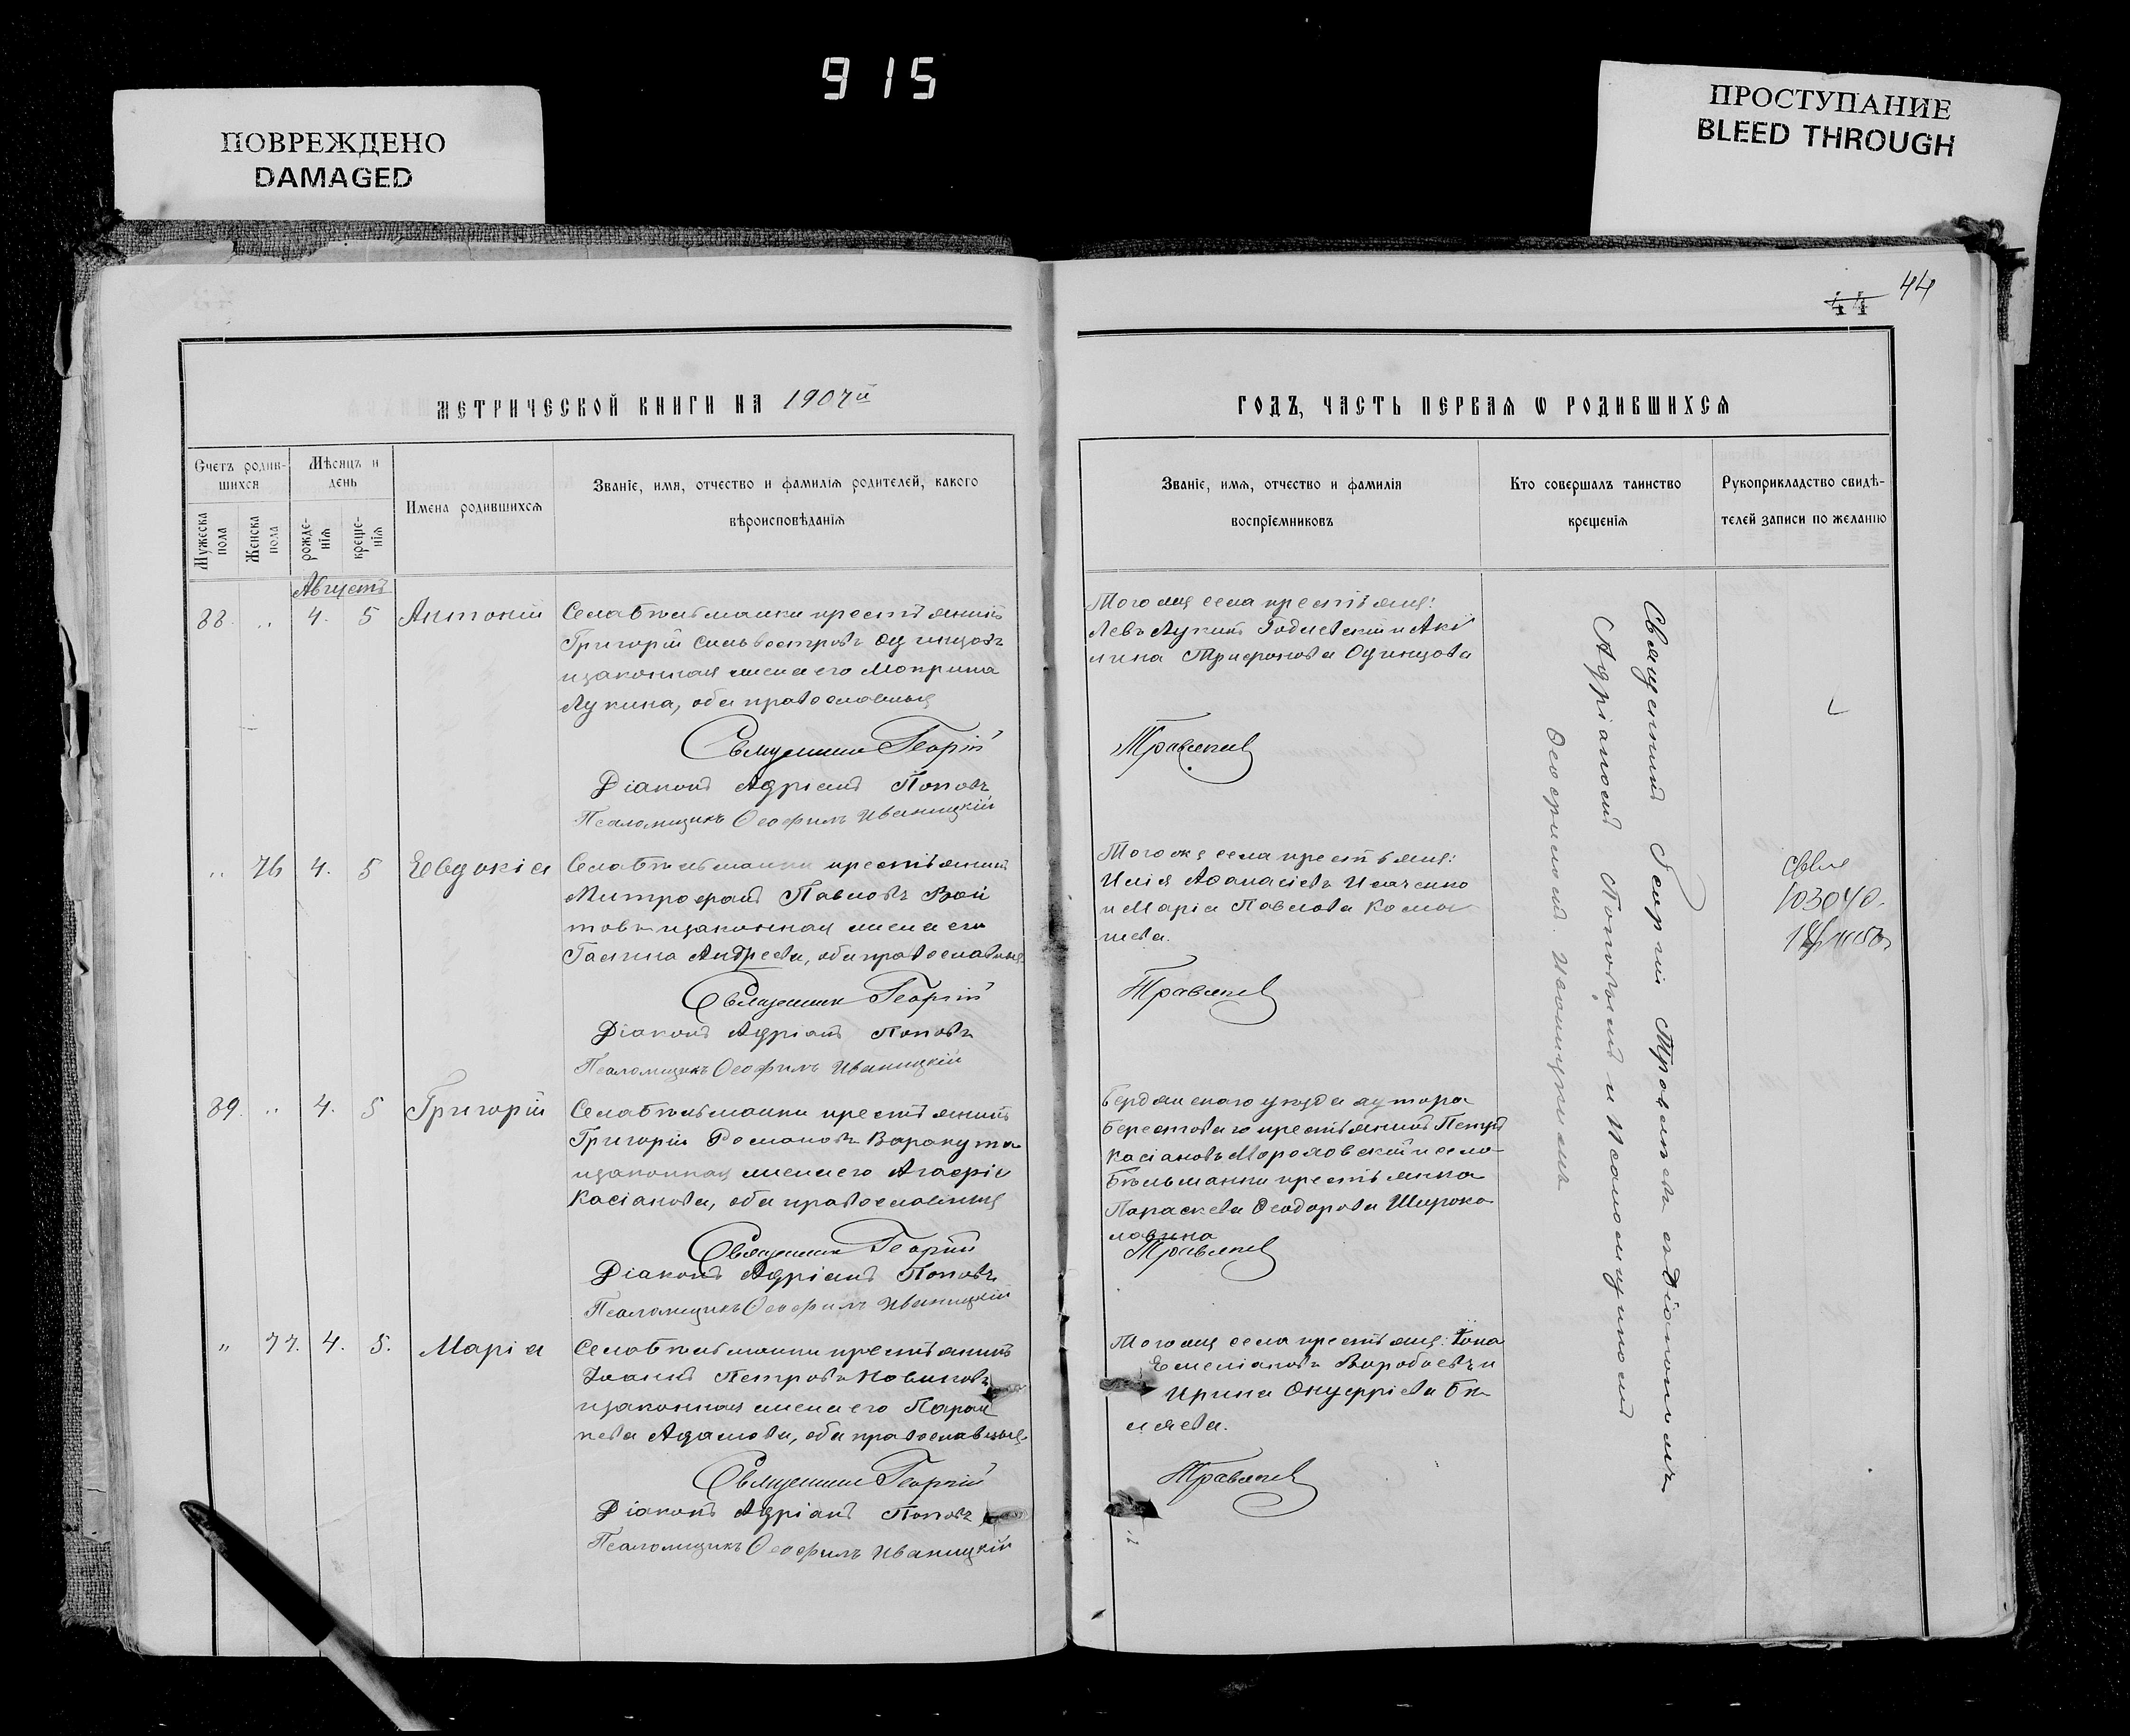 915
ПОВРЕЖДЕНО
DAMAGED
ПРОСТУПАНИЕ
BLEED THROUGH
44 44
МЕТРИЧЕСКОЙ КНИГИ НА 1907й
ГОДЪ, ЧАСТЬ ПЕРВАЯ Ѡ РОДИВШИХСЯ
Счетъ родив-
шихся
Мужеска пола
Женска пола
Мѣсяцъ и
день
рожде-
нія
креще-
нія
Имена родившихся
Званіе, имя, отчество и фамилія родителей, какого
вѣроисповѣданія
Званіе, имя, отчество и фамилія
воспріемниковъ
Кто совершалъ таинство
крещенія
Рукоприкладство свидѣ-
телей записи по желанію
Августъ
88. „ 4. 5 Антоній
Села Бѣльманки крестьянинъ
Григорій Сильвестровъ Одинцовъ
и законная жена его Мокрина
Лукина, оба православные
Священникъ Георгій
Діаконъ Адріанъ Поповъ
Псаломщикъ Ѳеофилъ Иваницкій
Того же села крестьяне:
Левъ Лукинъ и Аки
лина Трифонова Одинцова
Травлеев
„ 76 4. 5 Евдокія
Села Бѣльманки крестьянинъ
Митрофанъ Павловъ Вой
товъ и законная жена его
Галина Андреева, оба православные
Священникъ Георгій
Діаконъ Адріанъ Поповъ
Псаломщикъ Ѳеофилъ Иваницкій
Того же села крестьяне:
Илія Аѳанасіевъ Ильченко
и Марія Павлова
89. „ 4. 5 Григорій
Села Бѣльманки крестьянинъ
Григорій Романовъ Варакута
и законная жена его Агафія
Касіанова, оба православные
Священникъ Георгій
Діаконъ Адріанъ Поповъ
Псаломщикъ Ѳеофилъ Иваницкій
Бердянскаго уѣзда хутора
Берестоваго крестьянинъ Петръ
Касіановъ и села
Бѣльманки крестьянка
Параскева Ѳеодорова Широко
„ 77. 4. 5. Марія
Села Бѣльманки крестьянинъ
Іоаннъ Петровъ Новиковъ
и законная жена его Парас
кева Адамова, оба православные
Священникъ Георгій
Діаконъ Адріанъ Поповъ
Псаломщикъ Ѳеофилъ Иваницкій
Того же села крестьяне: Іона
Емеліановъ Воробьевъ и
Ирина Онуфріева Бѣ
ляева.
Священникъ Георгій съ Діакономъ
Адріаномъ Поповымъ и Псаломщикомъ
Ѳеофиломъ Иваницкимъ